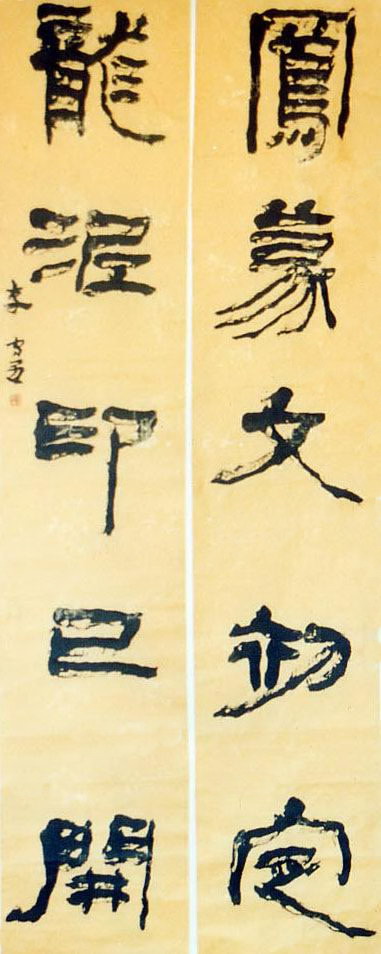 鳳篆文初定
龍泥印已開
李